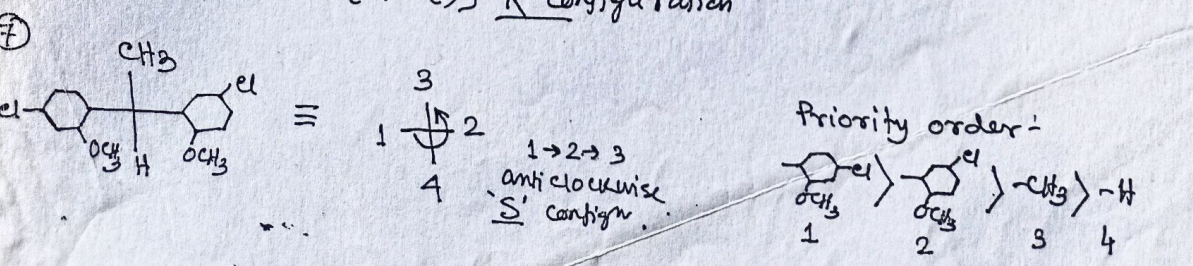 R Configuration
7
CH3
Cl
Cl
OCH3
H
OCH3
≡
3
1
2
4
1→2→3
anticlockwise
'S' config^n.
Priority order:-
Cl > Cl > -CH3 > -H
OCH3
OCH3
1 2 3 4